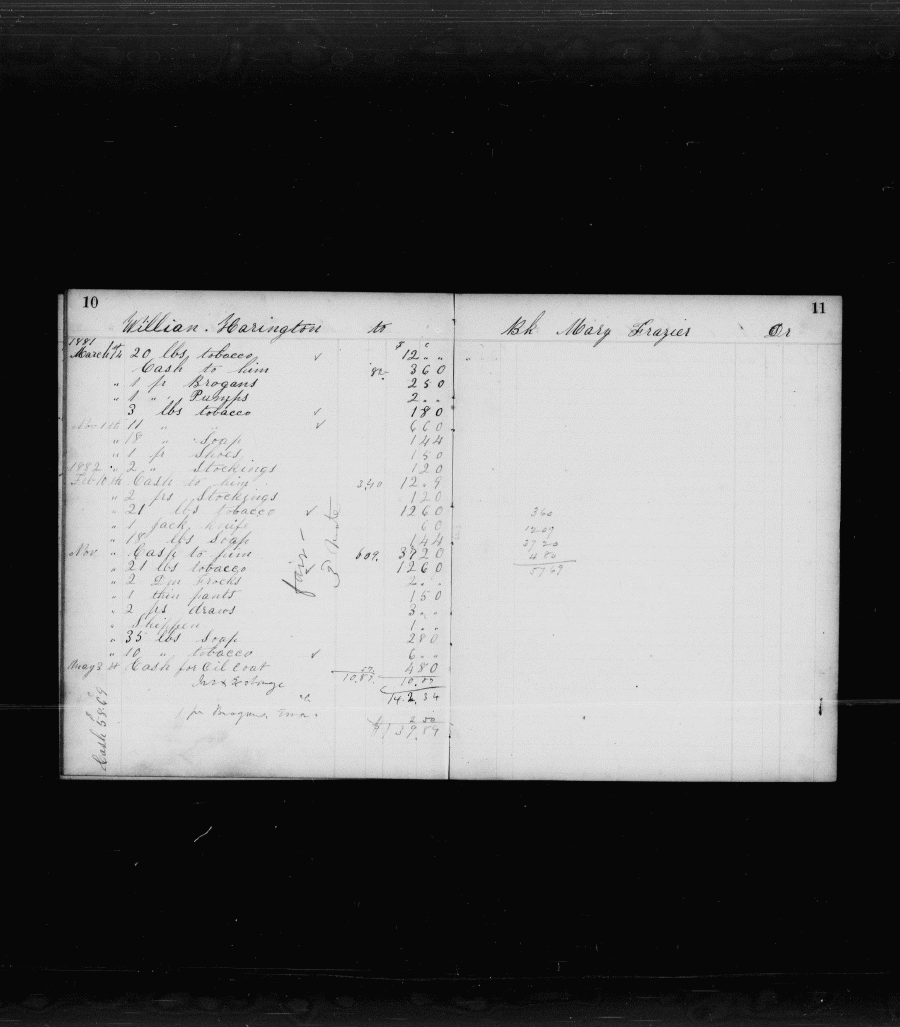 10
Willian. Harington to
1881
March 14 20 lbs tobacco ✓ $12 " "
Cash to him 82 3 60
" 1 pr Brogans 2 50
" 1 " Pumps 2 " "
3 lbs tobacco ✓ 1 80
Nov 11 " " ✓ 6 60
" 18 " Soap 1 44
" 1 pr Shoes 1 50
1882 " 2 " Stockings 1 20
Feb 10th Cash to him 340 12 " 9
" 2 prs Stockings 1 20
" 21 lbs tobacco ✓ 12 60
" 1 Jack knife 60
" 18 lbs Soap 1 44
Nov " Cash to him 609 37 20
" 21 lbs tobacco 12 60
" 2 Frocks 2 " "
" 1 thin pants 1 50
" 2 prs draws 3 " "
" Shippen 1 " "
" 35 lbs Soap 2 80
" 10 " tobacco ✓ 6 " "
May 3 Cash for Oil Coat 4 80
10.87 10.87
142.34
1 pr Brogans 2 50
$139.84
fair
Cash 58.69
11
Bk Mary Frazier Cr
360
1209
3720
480
5769